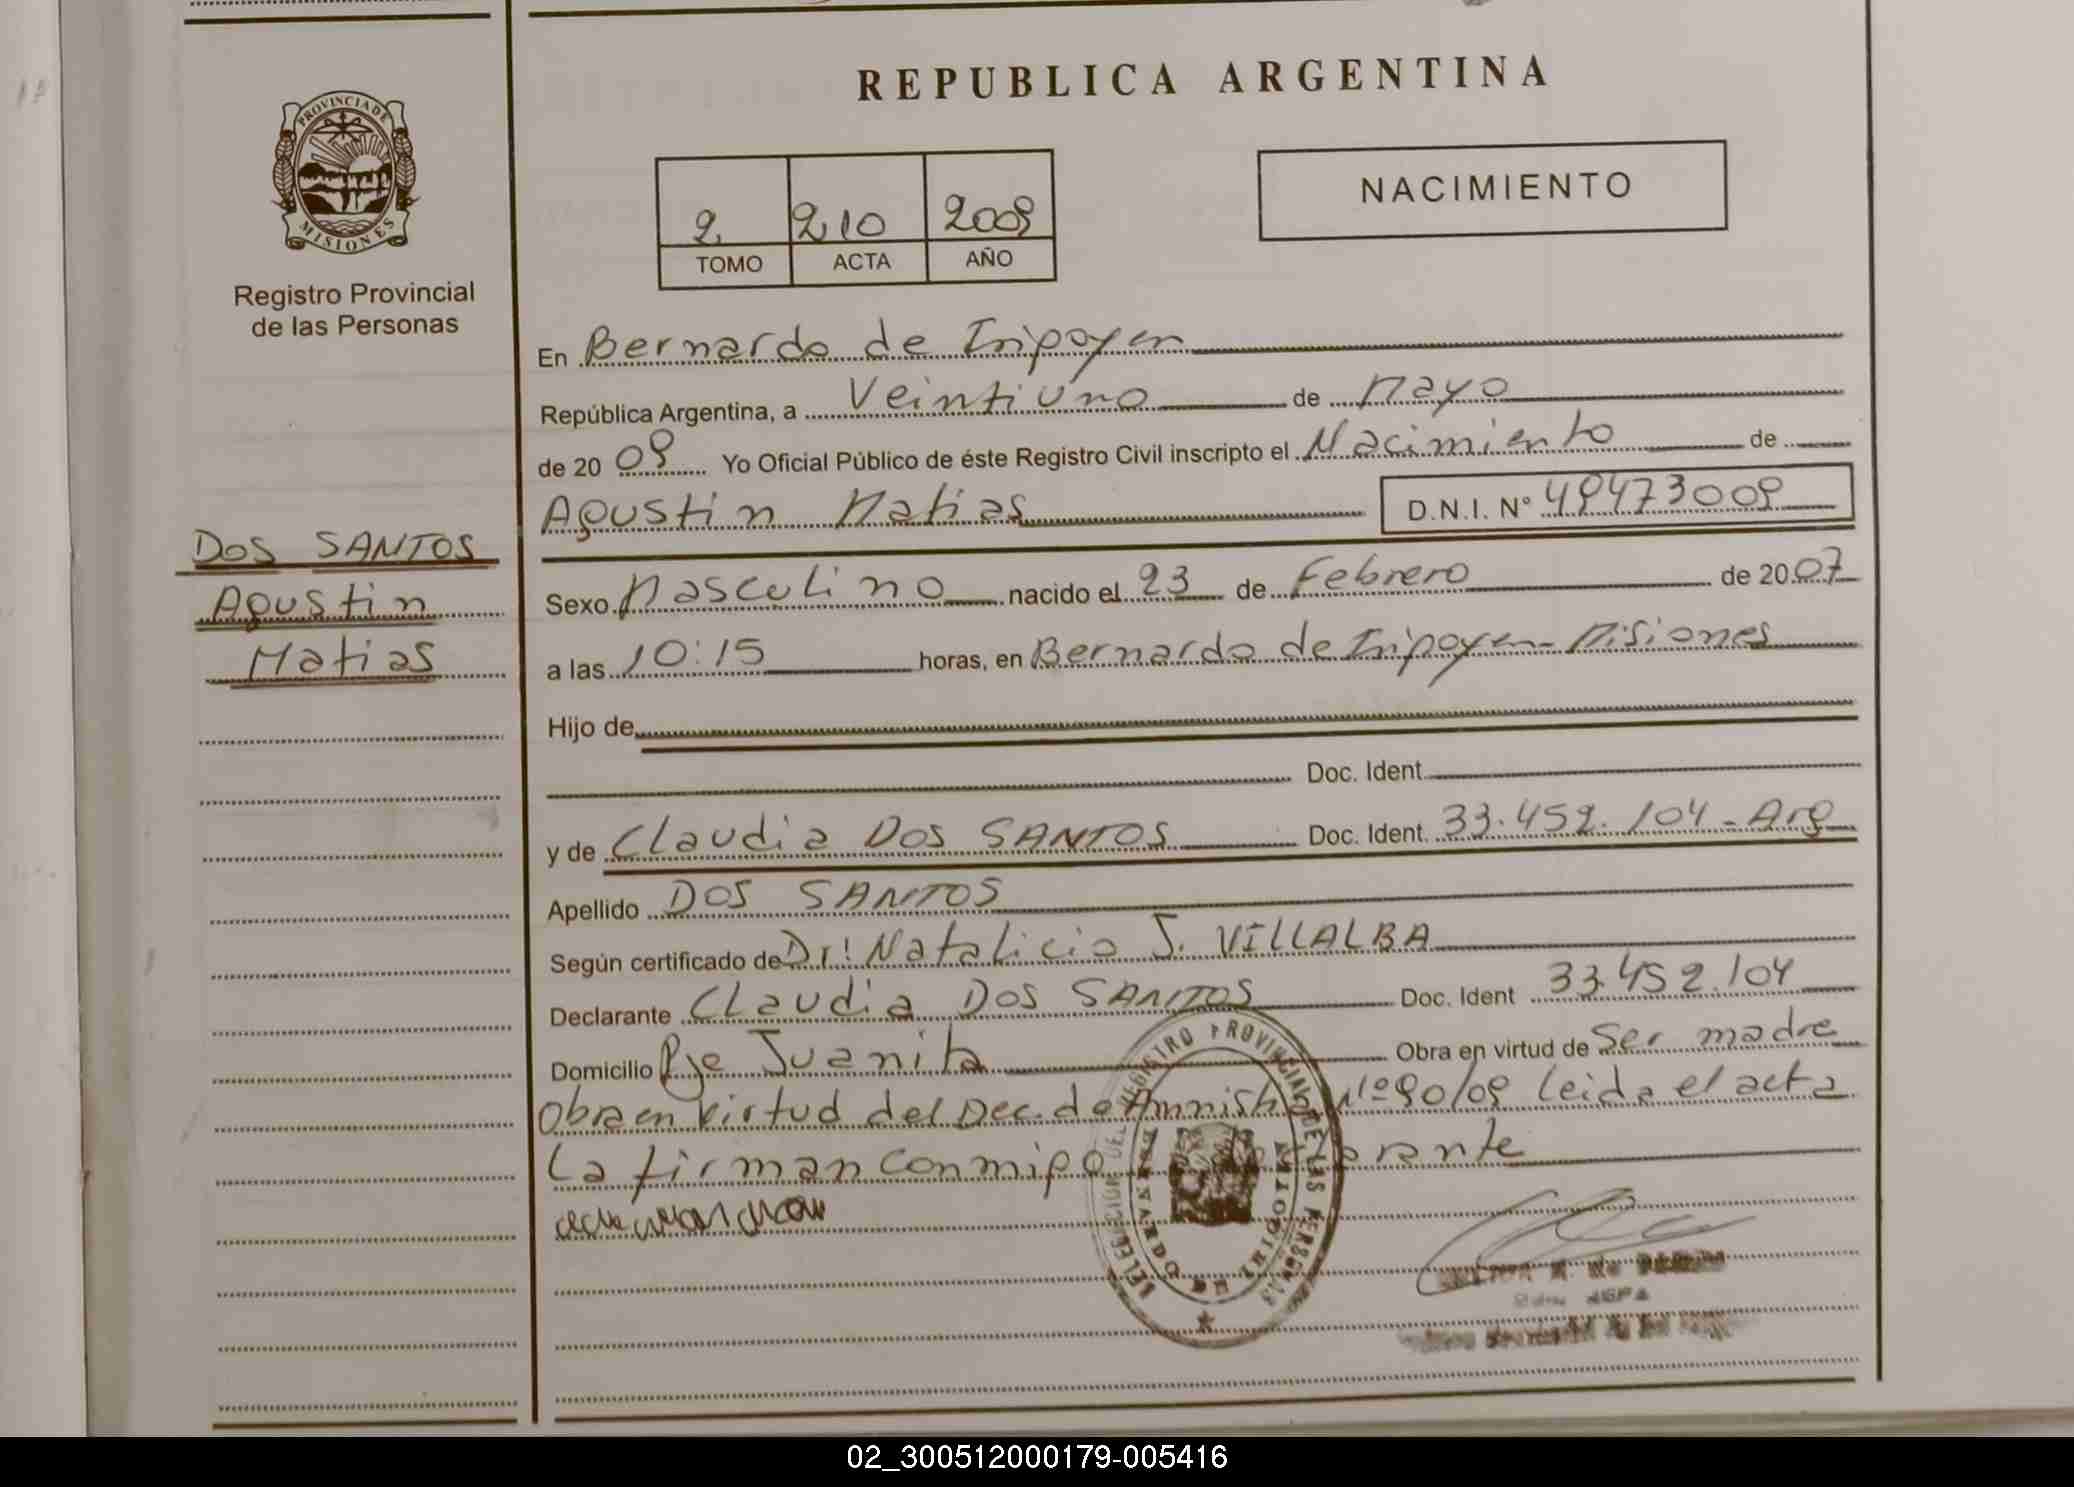 REPUBLICA ARGENTINA
PROVINCIA DE
MISIONES
Registro Provincial
de las Personas
2 210 2009
TOMO ACTA AÑO
NACIMIENTO
En Bernardo de Irigoyen
República Argentina, a Veintiuno de Mayo
de 20 09 Yo Oficial Público de éste Registro Civil inscripto el Nacimiento de
Agustin Matias D.N.I. Nº 49473009
DOS SANTOS
Agustin
Matias
Sexo Masculino nacido el 23 de Febrero de 2007
a las 10:15 horas, en Bernardo de Irigoyen - Misiones
Hijo de
Doc. Ident.
y de Claudia DOS SANTOS Doc. Ident. 33.452.104 - Arg
Apellido DOS SANTOS
Según certificado de Dr: Natalicio J. VILLALBA
Declarante Claudia DOS SANTOS Doc. Ident 33.452.104
Domicilio Pje Juanita Obra en virtud de Ser madre
Obra en virtud del Dec. de Nº 90/09 leida el acta
La firman conmigo
DELEGACION DEL REGISTRO PROVINCIAL DE LAS PERSONAS
BERNARDO DE IRIGOYEN
02_300512000179-005416